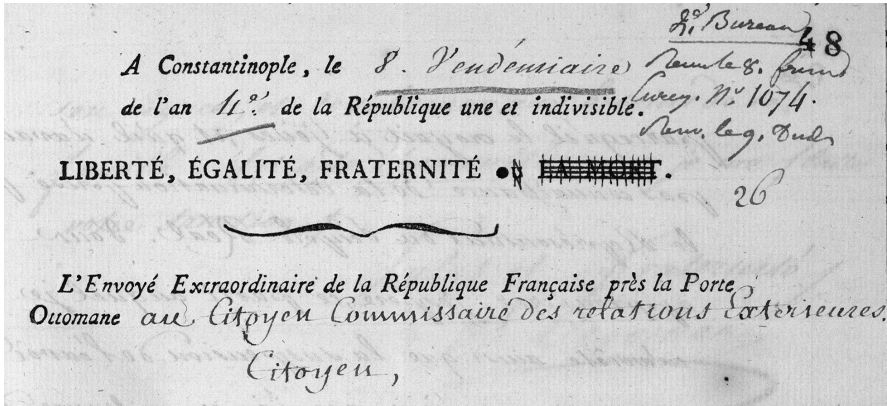 2.e Bureau
48
A Constantinople, le 8. Vendémiaire
de l'an 4.e de la République une et indivisible.
Rem. le 8. frim.
Enreg. N.o 1074.
Rem. le 9. Dud.
LIBERTÉ, ÉGALITÉ, FRATERNITÉ LA MORT.
26
L'Envoyé Extraordinaire de la République Française près la Porte
Ottomane au Citoyen Commissaire des relations Exterieures.
Citoyen,